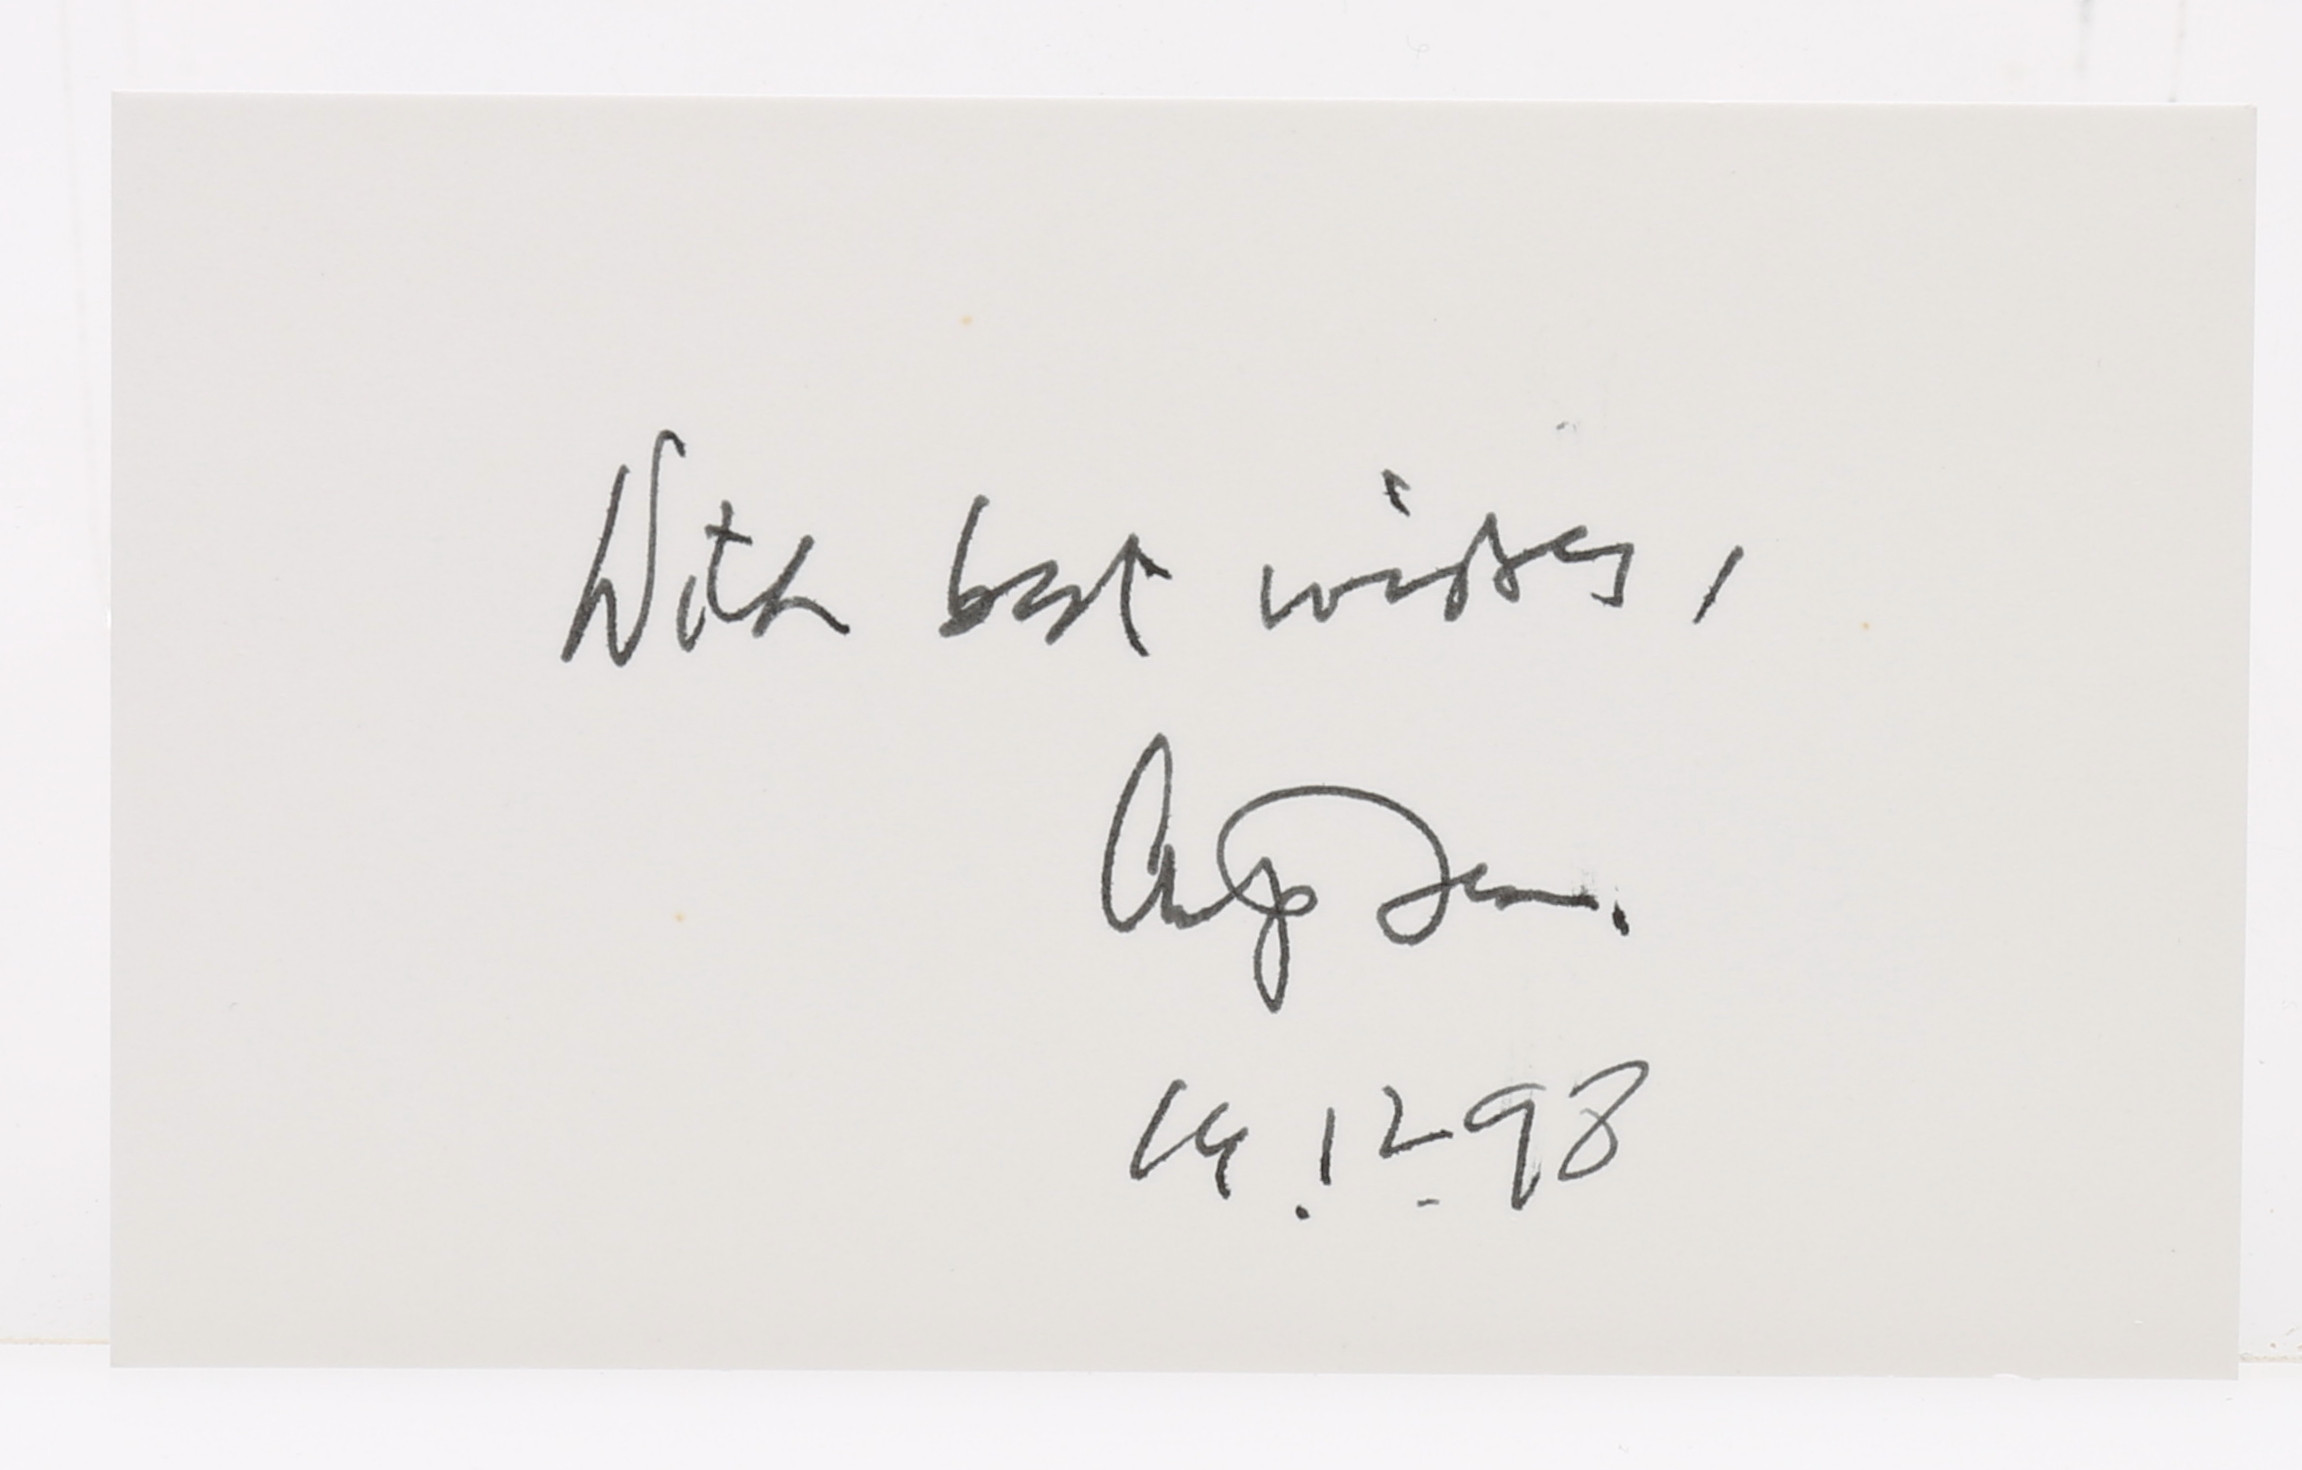 With best wishes,
19.12.98